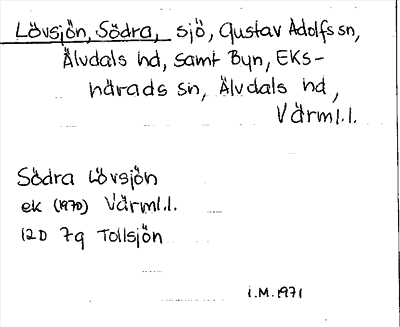 Lövsjön, Södra, sjö, Gustav Adolfs sn,
Älvdals hd, samt Byn, Eks-
härads sn, Älvdals hd,
Värml.l.
Södra Lövsjön
ek (1970) Värml.l.
12D 7g Tollsjön
i.M. 1971